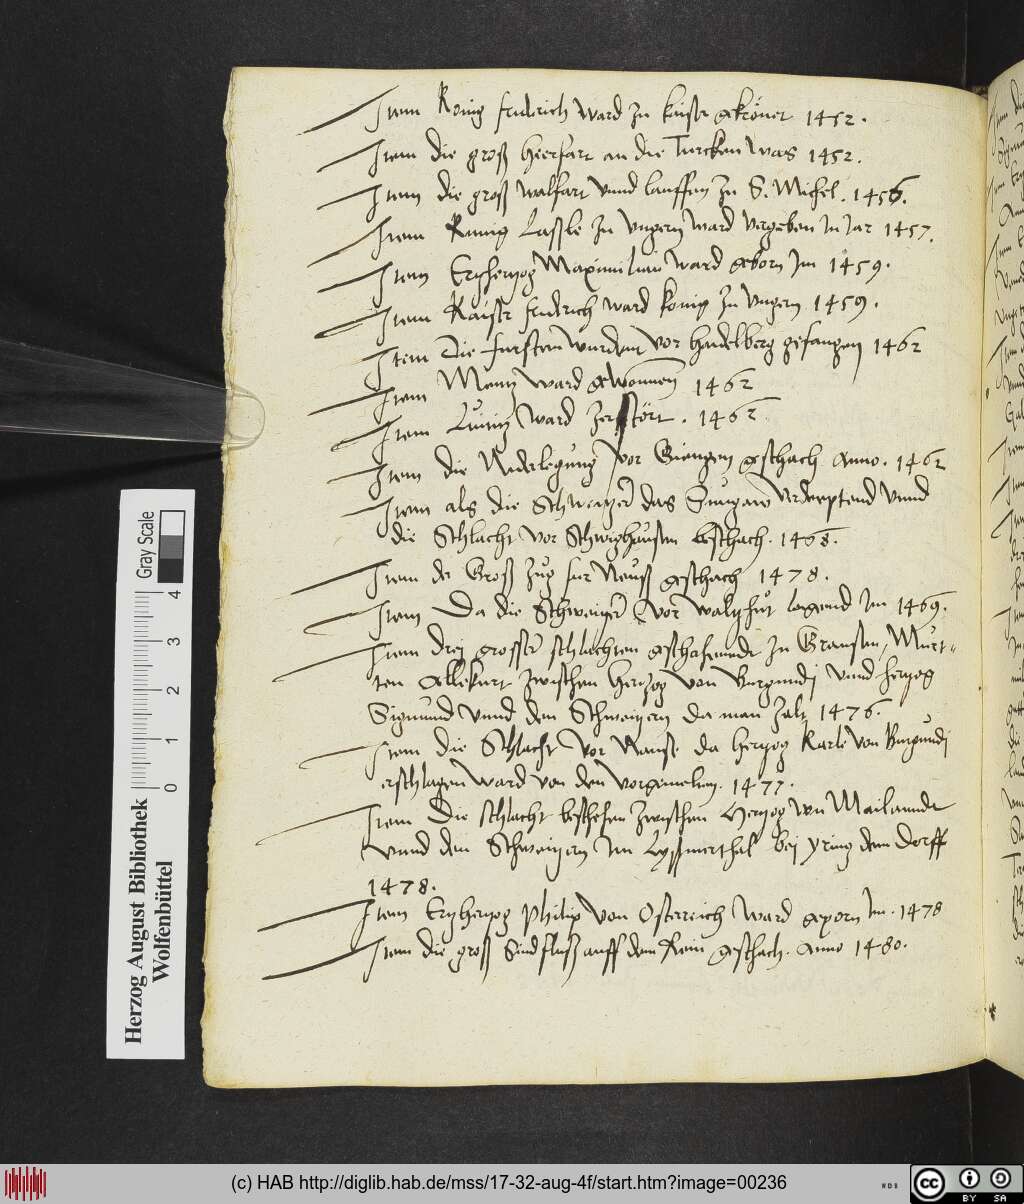 Item König fridrich ward zu kaiser gekrönet 1452.
Item die groß hierfart an die Turcken was 1452.
Item die groß walfart vnnd lauffen zu S. Michel. 1456.
Item Kunig Lassle zu vngern ward vergeben in Jar 1457.
Item Erzherzog Maximilian ward geborn Im 1459.
Item Kaiser fridrich ward konig zu vngern 1459.
Item Die fursten wurdent vor haidelberg gefangen 1462
Item Mentz ward gewonnen 1462
Item ward zerstört. 1462.
Item die Niderlegung vor Giengen geschach Anno. 1462
Item als die Schweitzer das Sungaw vnnd
die Schlacht vor beschach. 1468.
Item der Groß Zug fur Neuss geschach 1478.
Item Da die Schweitzer vor waltzhut lagend Im 1469.
Item drej grosser schlachten zu Gransen, Murt-
ten zwischen hertzog von Burgundj vnnd hertzog
Sigmund vnnd den Schweitzern da man zalt 1476.
Item die Schlacht vor Nanse da hertzog Karle von Burgundj
erschlagen ward von den 1477.
Item Die schlacht beschehen zwischen Hertzog von Mailanndt
vnnd den Schweitzern Im bej dem Dorff
1478.
Item Ertzhertzog Philip von Osterreich ward geporn Im. 1478
Item die groß Sindfluß auff dem Rein geschach. Anno 1480.
Herzog August Bibliothek
Wolfenbüttel
Gray Scale
0 1 2 3 4
(c) HAB http://diglib.hab.de/mss/17-32-aug-4f/start.htm?image=00236
WDB
cc
BY SA